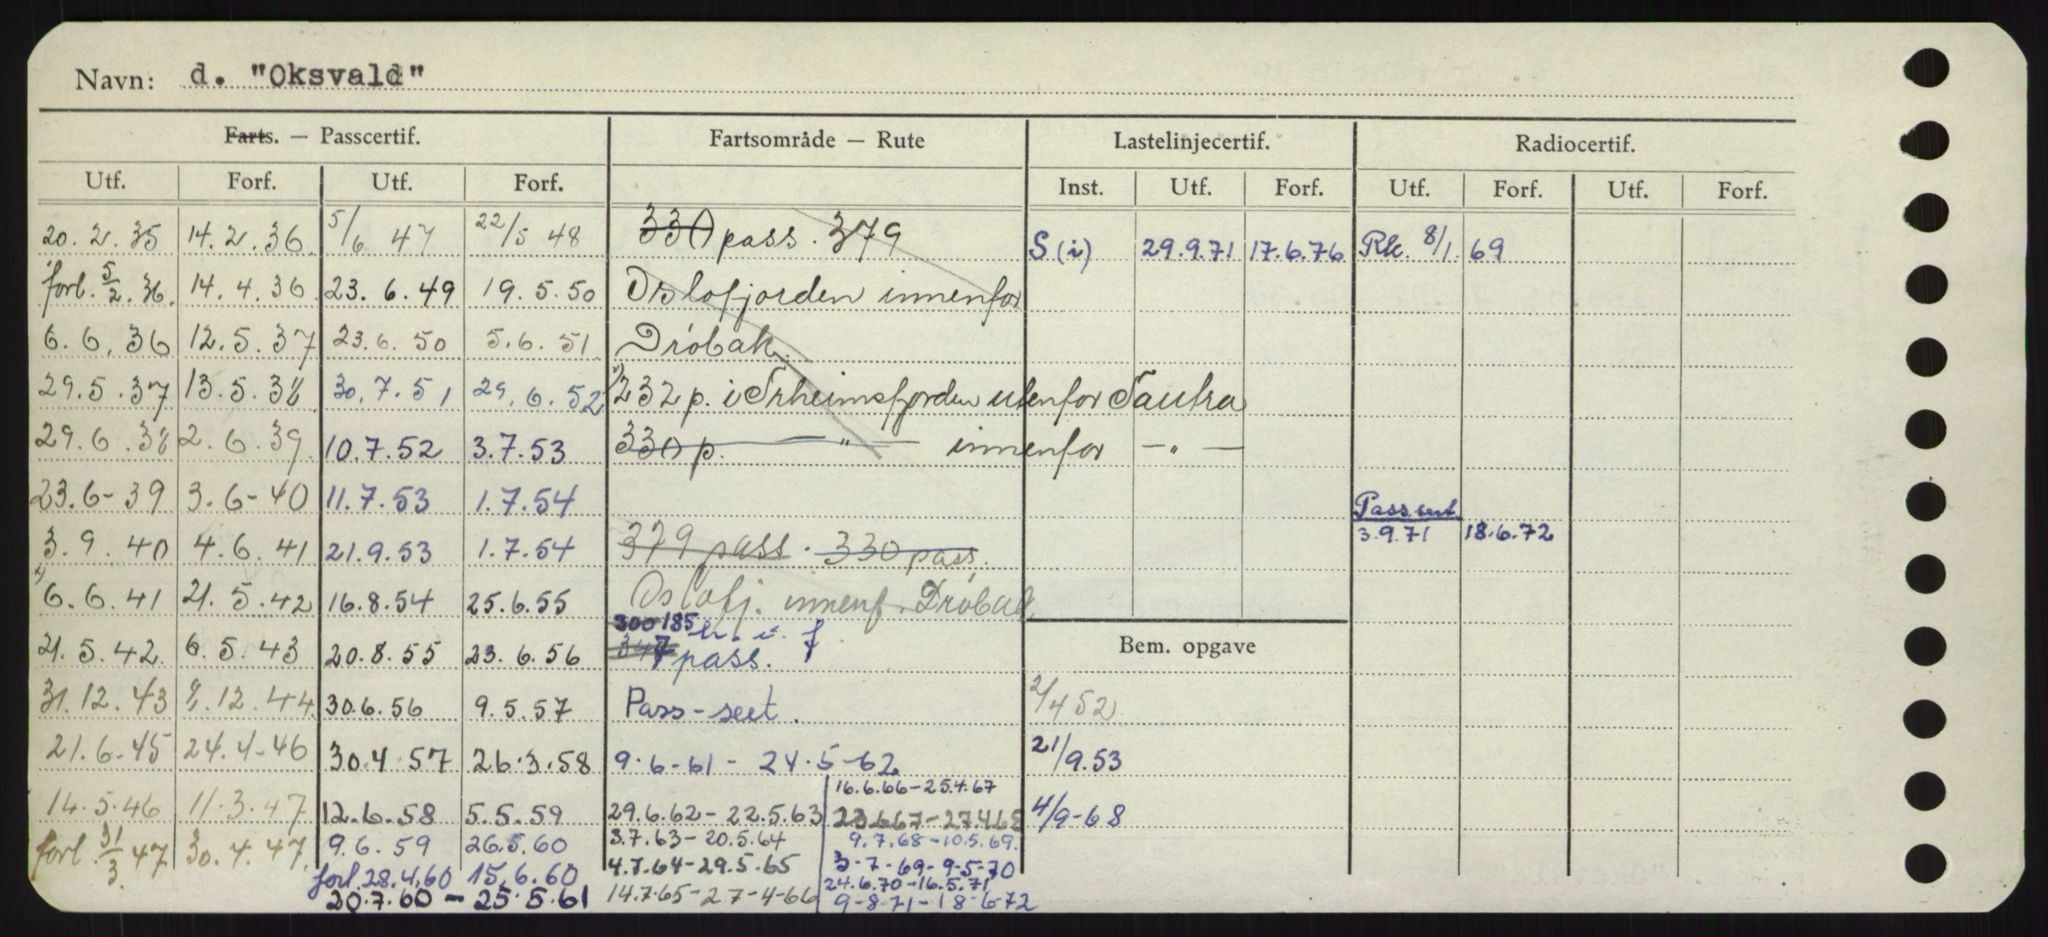 Navn: d. "Oksvald"
Farts. — Passcertif. Fartsområde — Rute Lastelinjecertif. Radiocertif.
Utf. Forf. Utf. Forf. Inst. Utf. Forf. Utf. Forf. Utf. Forf.
20.2.35 14.2.36 5/6 47 22/5 48 330 pass. 379 S (i) 29.9.71 17.6.76 Rk. 8/1 69
forl. 5/2.36. 14.4.36 23.6.49 19.5.50 Oslofjorden innenfor
6.6.36 12.5.37 23.6.50 5.6.51 Drøbak.
29.5.37 13.5.38 30.7.51 29.6.52 232 p. i Trheimsfjorden utenfor Tautra
29.6.38 2.6.39 10.7.52 3.7.53 330 p. — " — innenfor — " —
23.6-39 3.6-40 11.7.53 1.7.54 Pass sert.
3.9.40 4.6.41 21.9.53 1.7.54 379 pass. 330 pass. 3.9.71 18.6.72
6.6.41 21.5.42 16.8.54 25.6.55 Oslofj. innenf. Drøbak
300 185 h. i. f.
21.5.42 6.5.43 20.8.55 23.6.56 347 pass. Bem. opgave
31.12.43 9.12.44 30.6.56 9.5.57 Pass-sert. 2/4 52
21.6-45 24.4-46 30.4.57 26.3.58 9.6-61 - 24.5-62 21/9.53
16.6.66-25.4.67
14.5.46 11.3.47 12.6.58 5.5.59 29.6.62-22.5.63 23.6.67-27.4.68 4/9-68
forl. 31/3.47 30.4.47. 9.6.59 26.5.60 3.7.63-20.5.64 9.7.68-10.5.69.
forl. 28.4.60 15.6.60 4.7.64-29.5.65 3-7-69-9-5-70
24.6.70-16.5.71
20.7.60 - 25.5.61 14.7.65-27-4-66 9-8-71-18-6-72